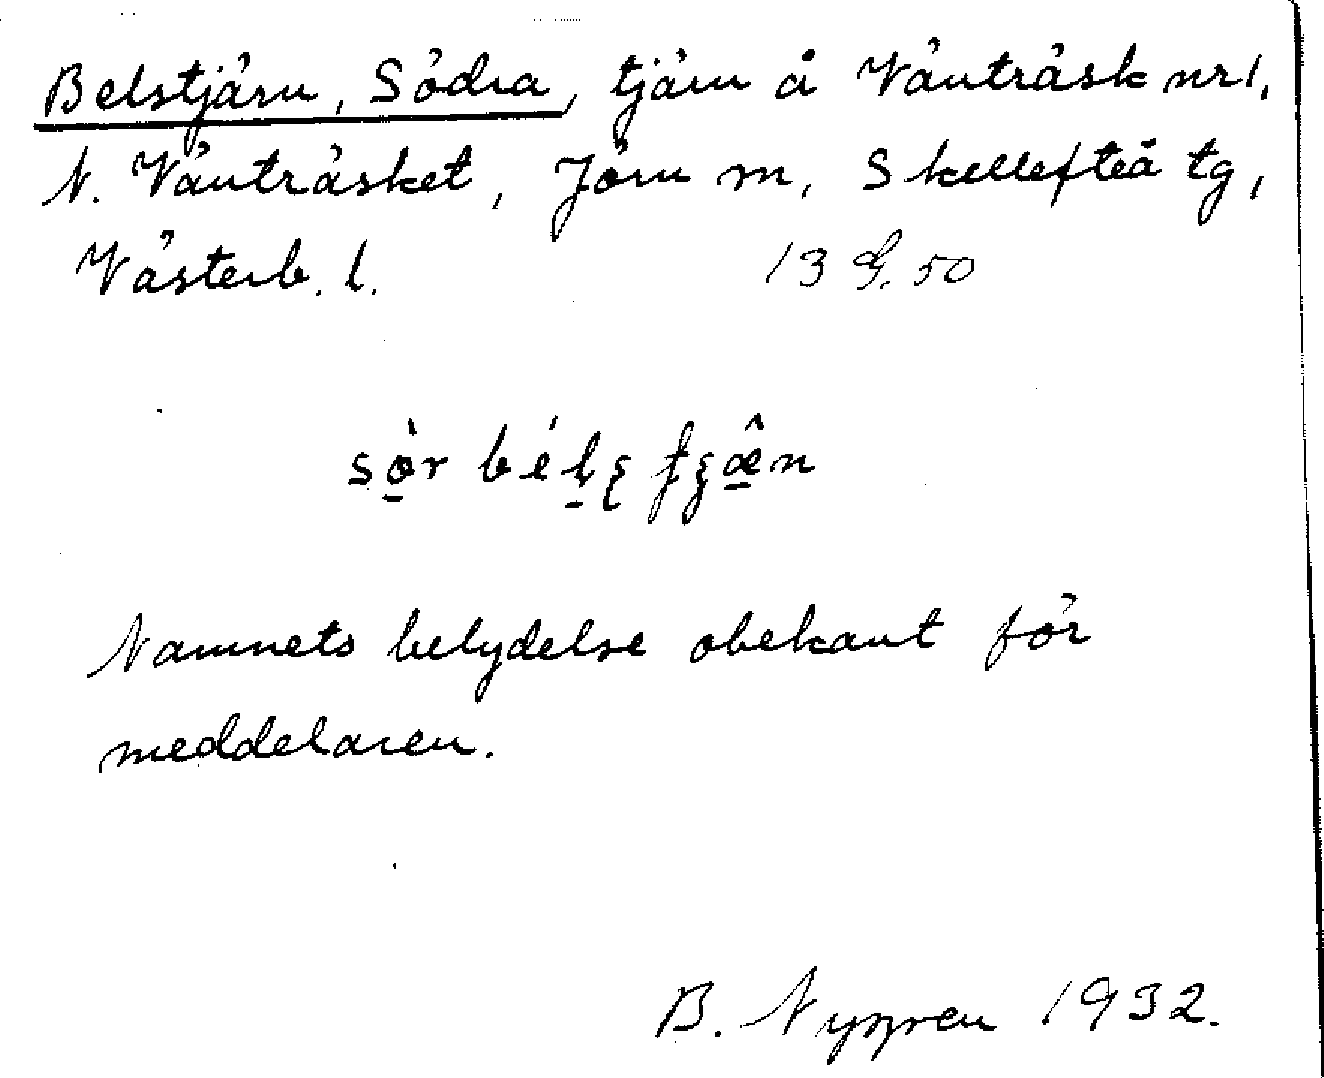 Belstjärn, Södra, tjärn å Vänträsk nr 1,
N. Vänträsket, Jörn sn, Skellefteå tg,
Västerb. l. 13 G. 50
Namnets betydelse obekant för
meddelaren.
B. Nygren 1932.